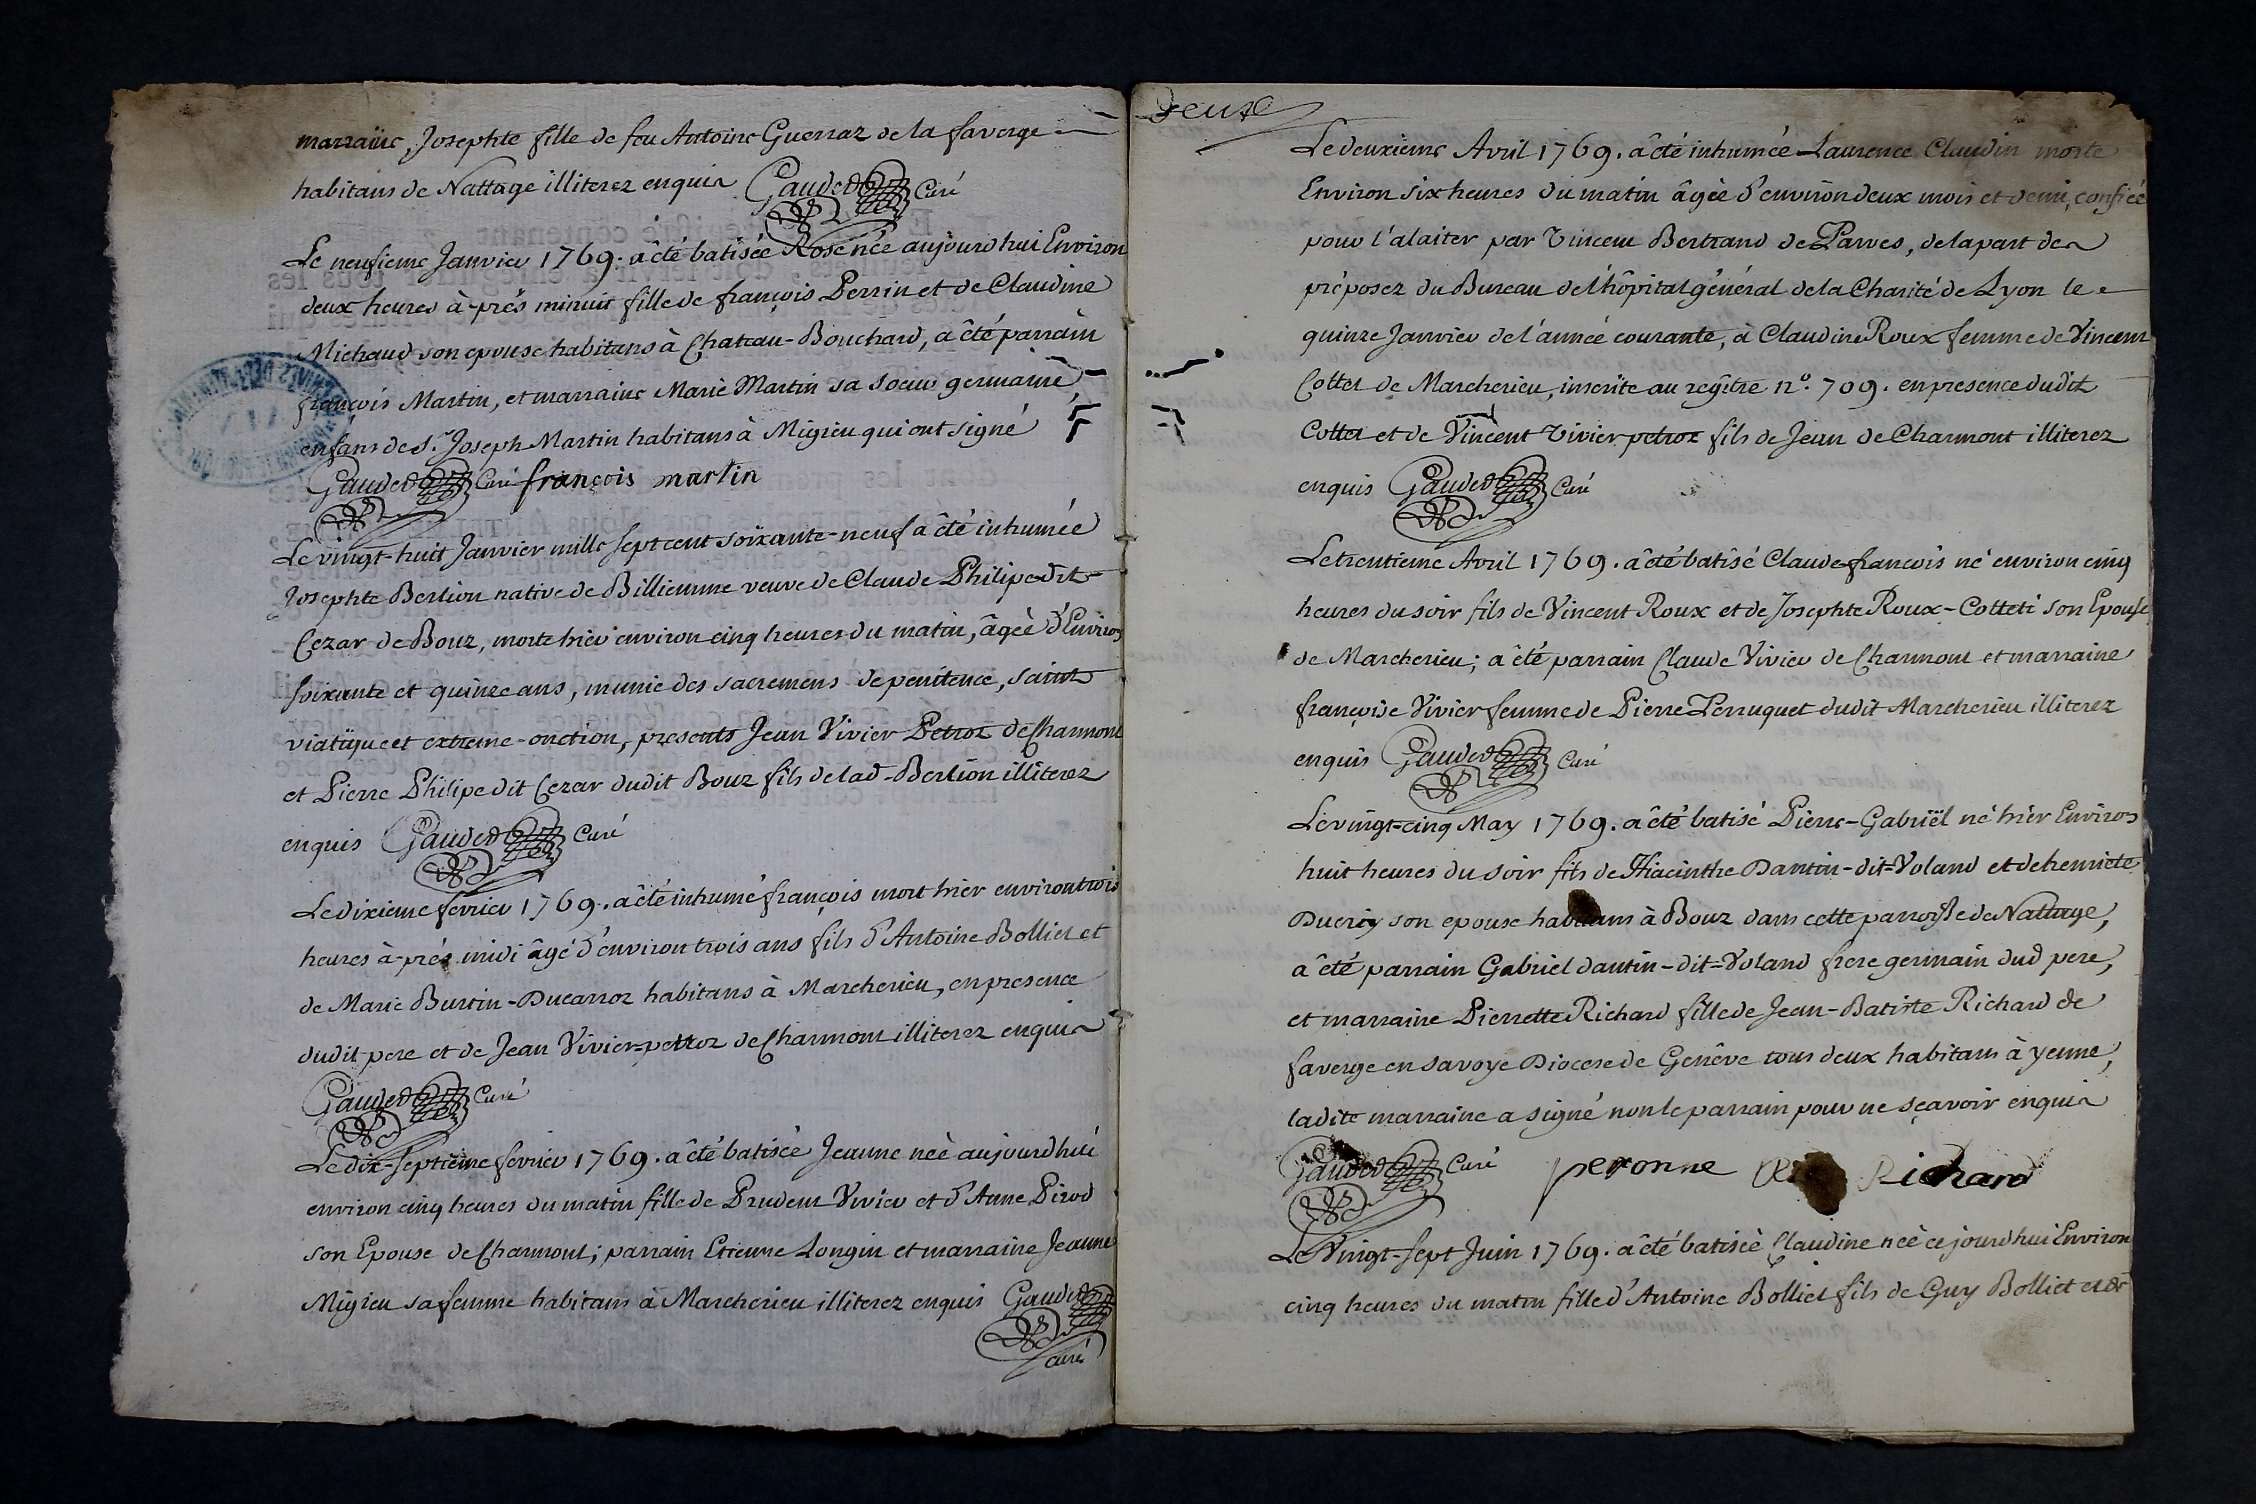 marraine, Josephte fille de feu Antoine Guerraz de la faverge
habitans de Nattage illiterez enquis Gaudet Curé
Le neufieme Janvier 1769. a êté batisée Rose née aujourd'hui Environ
deux heures à-prés minuit fille de françois Perrin et de Claudine
Michaud son epouse habitans à Chateau-Bouchard, a êté parrain
françois Martin, et marraine Marie Martin sa soeur germaine,
enfans de Sr. Joseph Martin habitans à Migieu qui ont signé
Gaudet Curé françois martin
Le vingt-huit Janvier mille sept cent soixante-neuf a êté inhumée
Josephte Berlion native de Billiemme veuve de Claude Philipe dit
Cezar de Bouz, morte hier environ cinq heures du matin, âgée d'Environ
soixante et quinze ans, munie des sacremens de penitence, saint
viatique et extreme-onction, presents Jean Vivier Petroz de Charmont
et Pierre Philipe dit Cezar dudit Bouz fils de lad-Berlion illiterez
enquis Gaudet Curé
Le dixieme fevrier 1769. a êté inhumé françois mort hier environ trois
heures à-prés midi âgé d'environ trois ans fils d'Antoine Bolliet et
de Marie Burtin-Ducarroz habitans à Marcherieu, en presence
dudit pere et de Jean Vivier-petroz de Charmont illiterez enquis
Gaudet Curé
Le dix-septieme fevrier 1769. a êté batisée Jeanne née aujourd'hui
environ cinq heures du matin fille de Prudent Vivier et d'Anne Pirod
son Epouse de Charmont; parrain Etienne Longin et marraine Jeanne
Migieu sa femme habitans à Marcherieu illiterez enquis Gaudet
curé
deux
Le deuxieme Avril 1769. a êté inhumée Laurence Claudin morte
Environ six heures du matin âgée d'environ deux mois et demi, confiée
pour l'alaiter par Vincent Bertrand de Parves, de la part des
préposez du Bureau de l'hôpital général de la Charité de Lyon le
quinze Janvier de l'année courante, à Claudine Roux femme de Vincent
Cottet de Marcherieu, inscrite au regître n°. 709. en presence dudit
Cottet et de Vincent Vivier petroz fils de Jean de Charmont illiterez
enquis Gaudet Curé
Le trentieme Avril 1769. a êté batisé Claude françois né environ cinq
heures du soir fils de Vincent Roux et de Josephte Roux-Cotteti son Epouse
de Marcherieu; a êté parrain Claude Vivier de Charmont et marraine
françoise Vivier femme de Pierre Perruquet dudit Marcherieu illiterez
enquis Gaudet Curé
Le vingt-cinq May 1769. a êté batisé Pierre-Gabriël né hier Environ
huit heures du soir fils de Hiacinthe Dantin-dit-Voland et de henriete
Ducroy son epouse habitans à Bouz dans cette parroisse de Nattage,
a êté parrain Gabriel dantin-dit-Voland frere germain dud pere,
et marraine Pierrette Richard fille de Jean-Batiste Richard de
faverge en savoye Diocese de Genêve tous deux habitans à yenne,
ladite marraine a signé non le parrain pour ne sçavoir enquis
Gaudet Curé peronne Richard
Le Vingt-sept Juin 1769. a êté batisée Claudine née ce jourd'hui Environ
cinq heures du matin fille d'Antoine Bolliet fils de Guy Bolliet et de